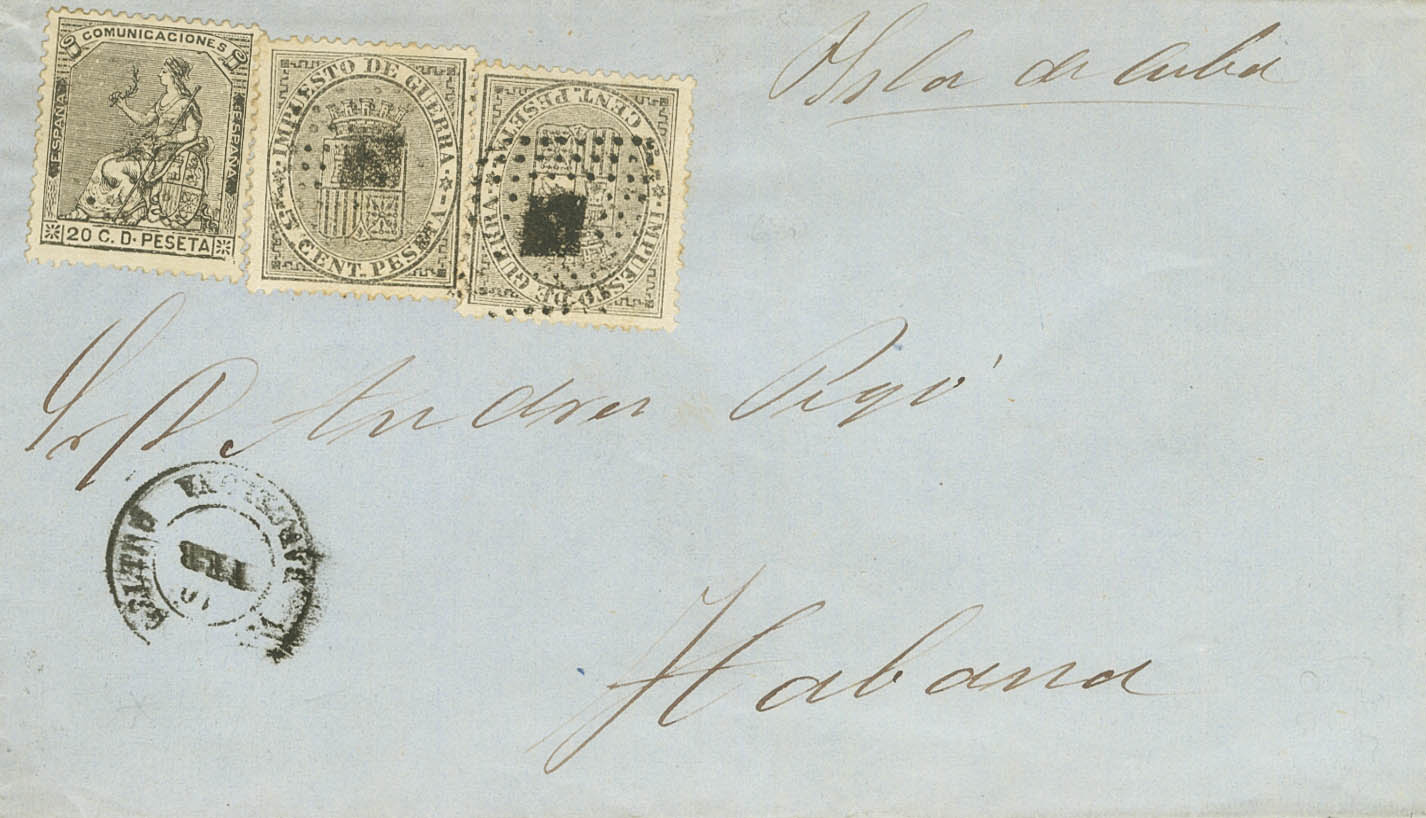 COMUNICACIONES
ESPAÑA
ESPAÑA
20 C. D. PESETA
IMPUESTO DE GUERRA
5 CENT. PESETA
IMPUESTO DE GUERRA
CENT. PESETA
Isla de Cuba
Sr. D. Andres
FEB
Habana